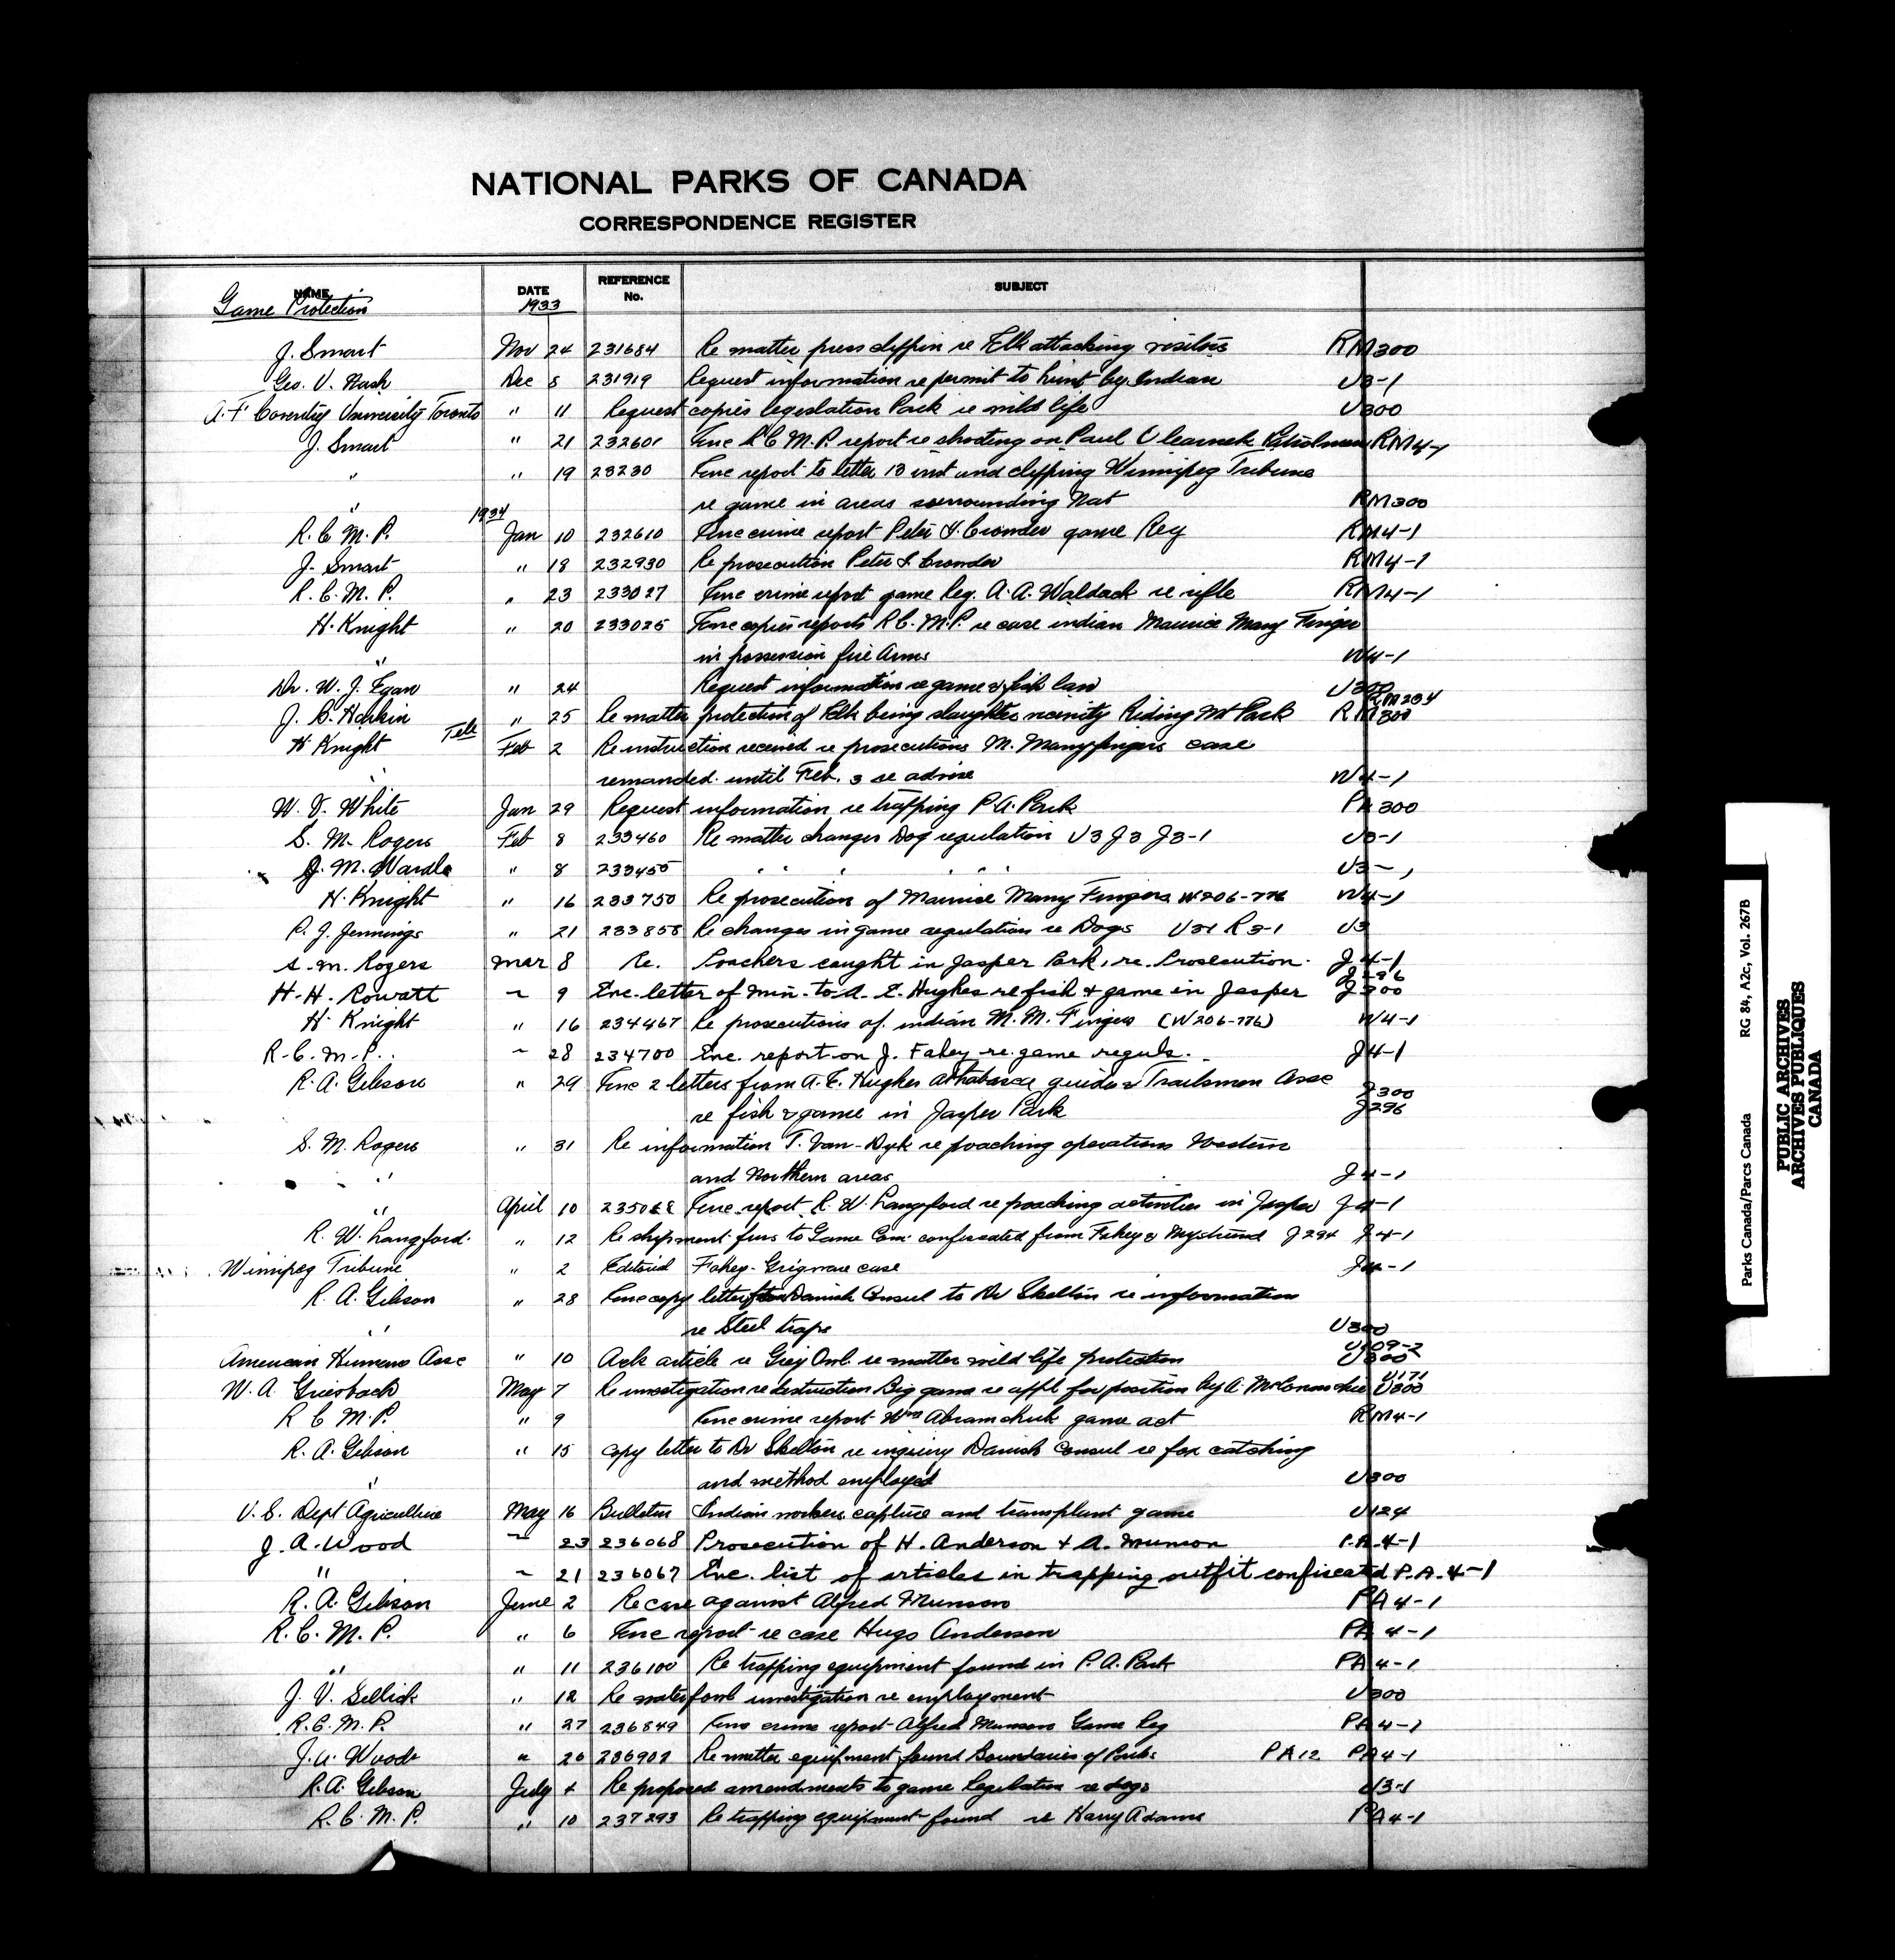 NATIONAL PARKS OF CANADA
CORRESPONDENCE REGISTER
NAME DATE REFERENCE No. SUBJECT
Game Protection 1933
J. Smart Nov 24 231684 Re matter press clippin re Elk attacking visitors RM300
Geo. V. Nash Dec 5 231919 Request information re permit to hunt by Indian U3-1
A. F Coventry University Toronto " 11 Request copies legislation Park re wild life U300
J. Smart " 21 232601 Enc R C M. P. report re shooting on Paul RM4-1
" " 19 23230 Enc report to letter 13 inst and clipping Winnipeg Tribune
" re game in areas surrounding Nat RM300
1934
R. C. M. P. Jan 10 232610 Enc crime report Peter Crowder game Reg RM4-1
J. Smart " 18 232930 Re prosecution Peter Crowder RM4-1
R. C. M. P. " 23 233027 Enc crime report game Reg. A. A. Waldack re rifle RM4-1
H. Knight " 20 233025 Enc copies reports R C. M. P. re case indian Maurice Many Finger
" in possession fire Arms W4-1
Dr. W. J. Egan " 24 Request information re game & fish law U300
J. B. Harkin " 25 Re matter protection of Elk being slaughter vicinity Riding Mt Park RM300 RM234
H Knight Tele Feb 2 Re instruction received re prosecutions M. Manyfingers case
" remanded until Feb. 3 re advise W4-1
W. V. White Jan 29 Request information re trapping P. A. Park PA 300
S. M. Rogers Feb 8 233460 Re matter changes Dog regulation U3 J3 J3-1 U3-1
J. M. Wardle " 8 233455 " " " " U3-1
H. Knight " 16 233750 Re prosecution of Maurice Many Fingers W206-776 W4-1
P. J. Jennings " 21 233858 Re changes in game regulation re Dogs U31 R3-1 U3
S. M. Rogers Mar 8 Re. Poachers caught in Jasper Park, re. Prosecution. J4-1
H. H. Rowatt ~ 9 Enc. letter of Min. to A. E. Hughes re fish & game in Jasper J296 J300
H. Knight " 16 234467 Re prosecutions of indian M. M. Fingers (W206-776) W4-1
R. C. M. P. ~ 28 234700 Enc. report on J. Fahey re. game reguls. J4-1
R. A. Gibson " 29 Enc 2 letters from A. E. Hughes Athabasca guides & Trailsmen Assc
re fish & game in Jasper Park J300 J296
S. M. Rogers " 31 Re information T. Van-Dyk re poaching operations Western
" and Northern areas J4-1
" April 10 235068 Enc. report R. W. Langford re poaching activities in Jasper J4-1
R. W. Langford. " 12 Re shipment furs to Game Com: confiscated from Fahey & J294 J4-1
Winnipeg Tribune " 2 Editorial Fahey-Grigware case J4-1
R. A. Gibson " 28 Enc copy letter from Danish Consul to Dr Skelton re information
" re Steel traps U300
American Humane Assc " 10 Ack article re Grey Owl. re matter wild life protection U109-2 U300
W. A. Griesbach May 7 Re investigation re destruction Big game re appl for position by A. U171 U300
R C M. P. " 9 Enc crime report Wm Abramchuk game act RM4-1
R. A. Gibson " 15 copy letter to Dr Skelton re inquiry Danish Consul re fox catching
" and method employed U300
U. S. Dept Agriculture May 16 Bulletin Indian workers capture and transplant game U124
J. A. Wood ~ 23 236068 Prosecution of H. Anderson & A. Munson P.A.4-1
" ~ 21 236067 Enc. list of articles in trapping outfit confiscated P.A.4-1
R. A. Gibson June 2 Re case against Alfred Munson PA4-1
R. C. M. P. " 6 Enc report re case Hugo Anderson PA 4-1
" " 11 236100 Re trapping equipment found in P. A. Park PA4-1
J. V. Sellick " 12 Re waterfowl investigation re employment U300
R. C. M. P. " 27 236849 Enc crime report Alfred Munson Game Reg PA4-1
J. A. Wood " 26 236902 Re matter equipment found Boundaries of Park PA12 PA4-1
R. A. Gibson July 4 Re proposed amendments to game legislation re dogs U3-1
R. C. M. P. " 10 237293 Re trapping equipment found re Harry Adams PA4-1
Parks Canada/Parcs Canada RG 84, A2c, Vol. 267B
PUBLIC ARCHIVES
ARCHIVES PUBLIQUES
CANADA